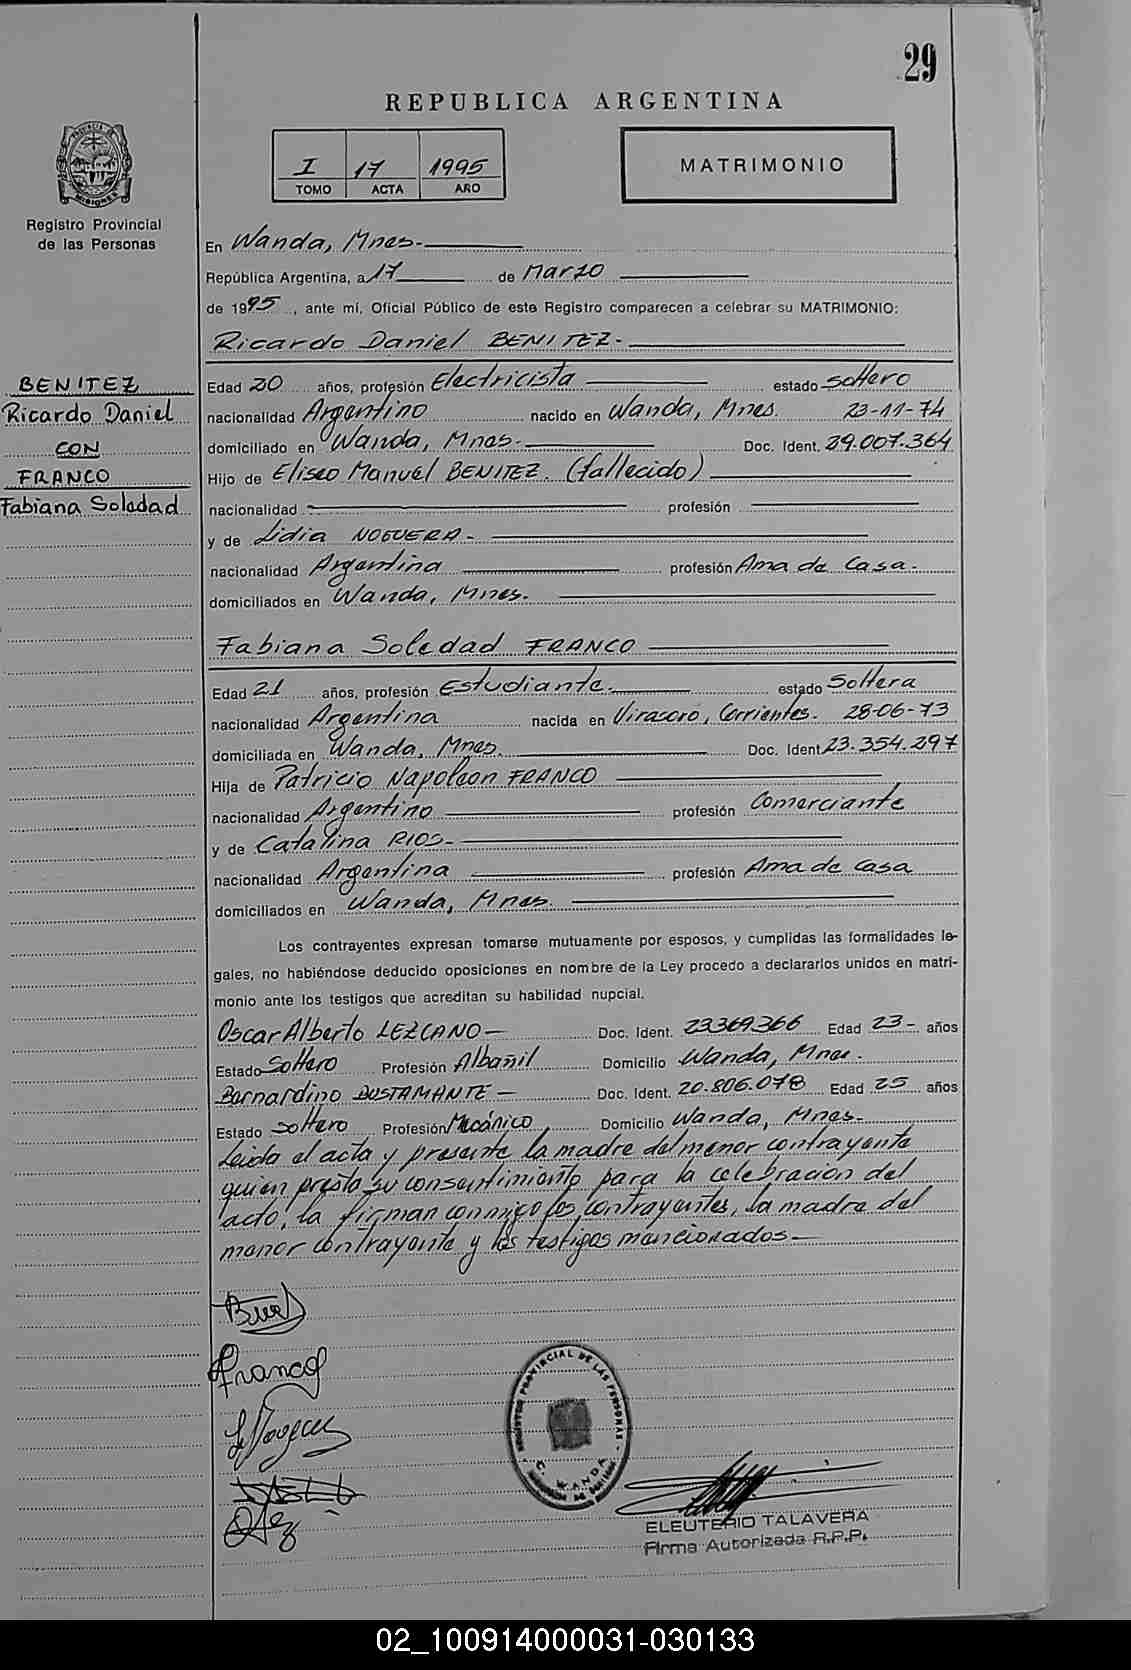 29
REPUBLICA ARGENTINA
I 17 1995
TOMO ACTA AÑO
MATRIMONIO
PROVINCIA DE MISIONES
Registro Provincial
de las Personas
En Wanda, Mnes.
República Argentina, a 17 de Marzo
de 1995, ante mí, Oficial Público de este Registro comparecen a celebrar su MATRIMONIO:
Ricardo Daniel BENITEZ.
BENITEZ
Ricardo Daniel
CON
FRANCO
Fabiana Soledad
Edad 20 años, profesión Electricista estado soltero
nacionalidad Argentino nacido en Wanda, Mnes. 23-11-74
domiciliado en Wanda, Mnes. Doc. Ident. 29.007.364
Hijo de Eliseo Manuel BENITEZ. (fallecido)
nacionalidad profesión
y de Lidia NOGUERA.
nacionalidad Argentina profesión Ama de Casa.
domiciliados en Wanda, Mnes.
Fabiana Soledad FRANCO
Edad 21 años, profesión Estudiante. estado Soltera
nacionalidad Argentina nacida en Virasoro, Corrientes. 28-06-73
domiciliada en Wanda, Mnes. Doc. Ident. 23.354.297
Hija de Patricio Napoleon FRANCO
nacionalidad Argentino profesión Comerciante
y de Catalina RIOS.
nacionalidad Argentina profesión Ama de Casa
domiciliados en Wanda, Mnes.
Los contrayentes expresan tomarse mutuamente por esposos, y cumplidas las formalidades le-
gales, no habiéndose deducido oposiciones en nombre de la Ley procedo a declararlos unidos en matri-
monio ante los testigos que acreditan su habilidad nupcial.
Oscar Alberto LEZCANO Doc. Ident. 23369366 Edad 23 años
Estado Soltero Profesión Albañil Domicilio Wanda, Mnes.
Bernardino BUSTAMANTE Doc. Ident. 20.806.078 Edad 25 años
Estado soltero Profesión Mecánico Domicilio Wanda, Mnes.
Leida el acta y presente la madre del menor contrayente
quien presta su consentimiento para la celebracion del
acto, la firman conmigo los contrayentes, la madre del
menor contrayente y los testigos mencionados
Franco
REGISTRO PROVINCIAL DE LAS PERSONAS
WANDA
ELEUTERIO TALAVERA
Firma Autorizada R.P.P.
02_100914000031-030133